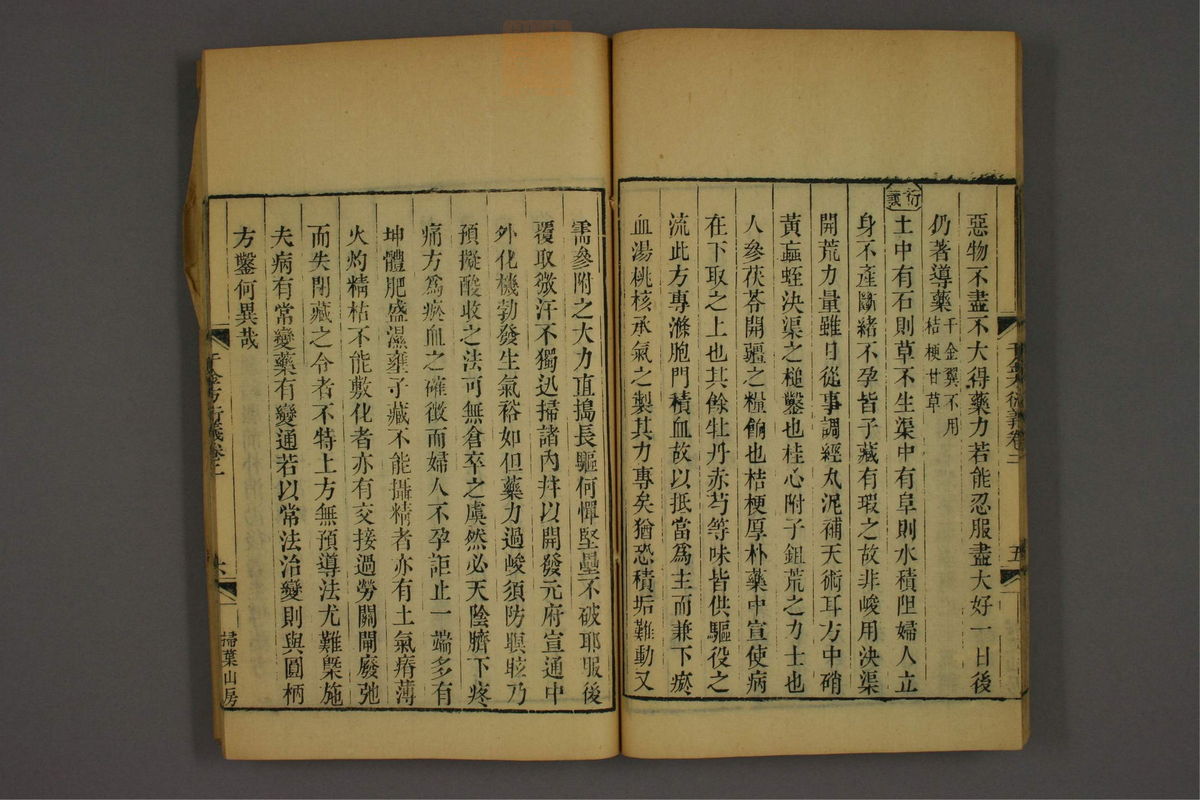 惡物不盡不大得藥力若能忍服盡大好一日後
仍著導藥千金翼不用桔梗甘草
衍義
土中有石則草不生渠中有阜則水積阻婦人立
身不產斷緒不孕皆子藏有瑕之故非峻用決渠
開荒力量雖日從事調經丸泥補天術耳方中硝
黃蝱蛭決渠之槌鑿也桂心附子鉏荒之力士也
人參茯苓開疆之糧餉也桔梗厚朴藥中宣使病
在下取之上也其餘牡丹赤芍等味皆供驅役之
流此方專滌胞門積血故以抵當為主而兼下瘀
血湯桃核承氣之製其力專矣猶恐積垢難動又
千金方衍義卷二
五
需參附之大力直搗長驅何憚堅壘不破耶服後
覆取微汗不獨迅掃諸內幷以開發元府宣通中
外化機勃發生氣裕如但藥力過峻須防瞑眩乃
預擬酸收之法可無倉卒之虞然必天陰臍下疼
痛方為瘀血之確徵而婦人不孕詎止一端多有
坤體肥盛濕壅子藏不能攝精者亦有土氣瘠薄
火灼精枯不能敷化者亦有交接過勞關閘廢弛
而失閉藏之令者不特上方無預導法尤難槩施
夫病有常變藥有變通若以常法治變則與圓柄
方鑿何異哉
千金方衍義卷二
六
掃葉山房